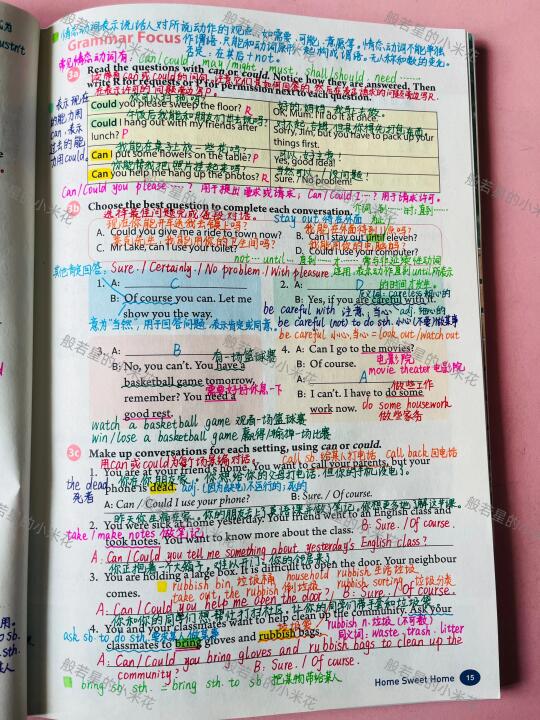 情态动词表示说话人对所说动作的观点,如需要,可能,意愿等。情态动词不能单独
Grammar Focus 作谓语,只能和动词原形一起构成谓语。无人称和数的变化。
常见情态动词有: can/could, may/might, must, shall/should, need ……
否定:在其后+not.
3a Read the questions with can or could. Notice how they are answered. Then
write R for requests or P for permission next to each question.
Could you please sweep the floor? R
OK, Mum. I'll do it at once.
Could I hang out with my friends after
lunch? P
Sorry, Jim, but you have to pack up your
things first.
我能在桌子上放一些花吗?
Can I put some flowers on the table? P
Yes, good idea!
Can you help me hang up the photos? R
Sure. / No problem!
表示现在
的能力用
can,表示
过去的能
力用could。
Can/Could you please …? 用于提出请求或请求, Can/Could I …? 用于请求许可。
3b Choose the best question to complete each conversation.
stay out 待在外面
A. Could you give me a ride to town now?
B. Can I stay out until eleven?
C. Mr Lake, can I use your toilet?
D. Could I use your computer?
其他肯定回答: Sure. / Certainly. / No problem. / With pleasure
1. A: C
B: Of course you can. Let me
show you the way.
意为"当然,用于回答问题,表示肯定或同意。
2. A: D
B: Yes, if you are careful with it.
be careful with 注意,当心
be careful (not) to do sth. 小心(不要)做某事
小心,当心 = look out / watch out
3. A: B
B: No, you can't. You have a
basketball game tomorrow,
remember? You need a
good rest.
有一场篮球赛
需要好好休息一下
4. A: Can I go to the movies?
B: Of course.
电影院
movie theater 电影院
A: A
B: I can't. I have to do some
work now.
做些工作
do some housework
做些家务
watch a basketball game 观看一场篮球赛
win/lose a basketball game 赢得/输掉一场比赛
3c Make up conversations for each setting, using can or could.
用can或could为每个场景编对话。
call sb. 给某人打电话 call back 回电话
1. You are at your friend's home. You want to call your parents, but your
phone is dead.
the dead
死者
adj. (因为缺电)不运行的;死的
A: Can / Could I use your phone? B: Sure. / Of course.
2. You were sick at home yesterday. Your friend went to an English class and
took notes. You want to know more about the class.
take/make notes 做笔记
B: Sure. / Of course.
A: Can/Could you tell me something about yesterday's English class?
3. You are holding a large box. It is difficult to open the door. Your neighbour
comes.
rubbish bin 垃圾桶 household rubbish 生活垃圾
take out the rubbish 倒垃圾 rubbish sorting 垃圾分类
A: Can/Could you help me open the door? B: Sure. / Of course.
4. You and your classmates want to help clean up the community. Ask your
classmates to bring gloves and rubbish bags.
ask sb. to do sth. 要求某人做某事
rubbish n. 垃圾 (不可数)
同义词: waste, trash, litter
A: Can/Could you bring gloves and rubbish bags to clean up the
community? B: Sure. / Of course.
bring sb. sth. = bring sth. to sb. 把某物带给某人
Home Sweet Home 15
般若星的小米花